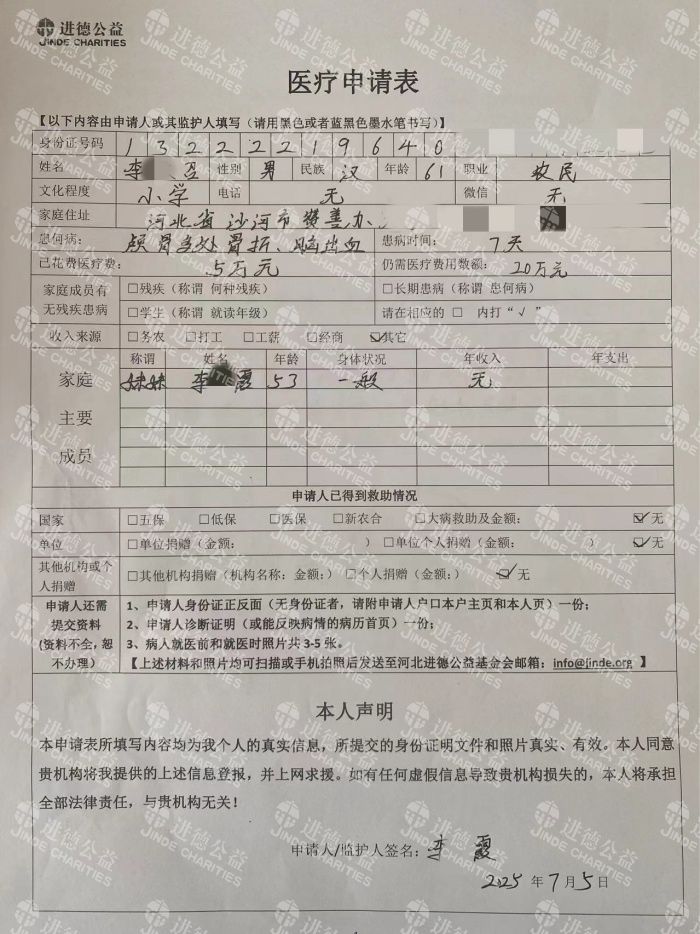 进德公益
JINDE CHARITIES
医疗申请表
【以下内容由申请人或其监护人填写（请用黑色或者蓝黑色墨水笔书写）】
身份证号码 1 3 2 2 2 2 1 9 6 4 0
姓名 李 性别 男 民族 汉 年龄 61 职业 农民
文化程度 小学 电话 无 微信 无
家庭住址 河北省沙河市 办
患何病： 颅骨多处骨折、脑出血 患病时间： 7天
已花费医疗费： 5万元 仍需医疗费用数额： 20万元
家庭成员有无残疾患病 □残疾（称谓 何种残疾） □长期患病（称谓 患何病）
□学生（称谓 就读年级） 请在相应的 □ 内打“√”
收入来源 □务农 □打工 □工薪 □经商 ☑其它
家庭主要成员 称谓 姓名 年龄 身体状况 年收入 年支出
妹妹 李 霞 53 一般 无
申请人已得到救助情况
国家 □五保 □低保 □医保 □新农合 □大病救助及金额： ☑无
单位 □单位捐赠（金额： ） □单位个人捐赠（金额： ） ☑无
其他机构或个人捐赠 □其他机构捐赠（机构名称：金额：）□个人捐赠（金额：） ☑无
申请人还需提交资料（资料不全，恕不办理）
1、申请人身份证正反面（无身份证者，请附申请人户口本户主页和本人页）一份；
2、申请人诊断证明（或能反映病情的病历首页）一份；
3、病人就医前和就医时照片共 3-5 张。
【上述材料和照片均可扫描或手机拍照后发送至河北进德公益基金会邮箱：info@jinde.org 】
本人声明
本申请表所填写内容均为我个人的真实信息，所提交的身份证明文件和照片真实、有效。本人同意
贵机构将我提供的上述信息登报，并上网求援。如有任何虚假信息导致贵机构损失的，本人将承担
全部法律责任，与贵机构无关！
申请人/监护人签名： 李 霞
2025 年 7 月 5 日